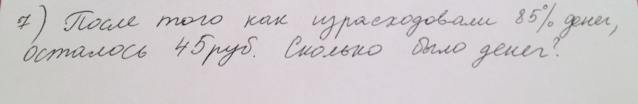 7) После того как израсходовали 85% денег,
осталось 45руб. Сколько было денег?